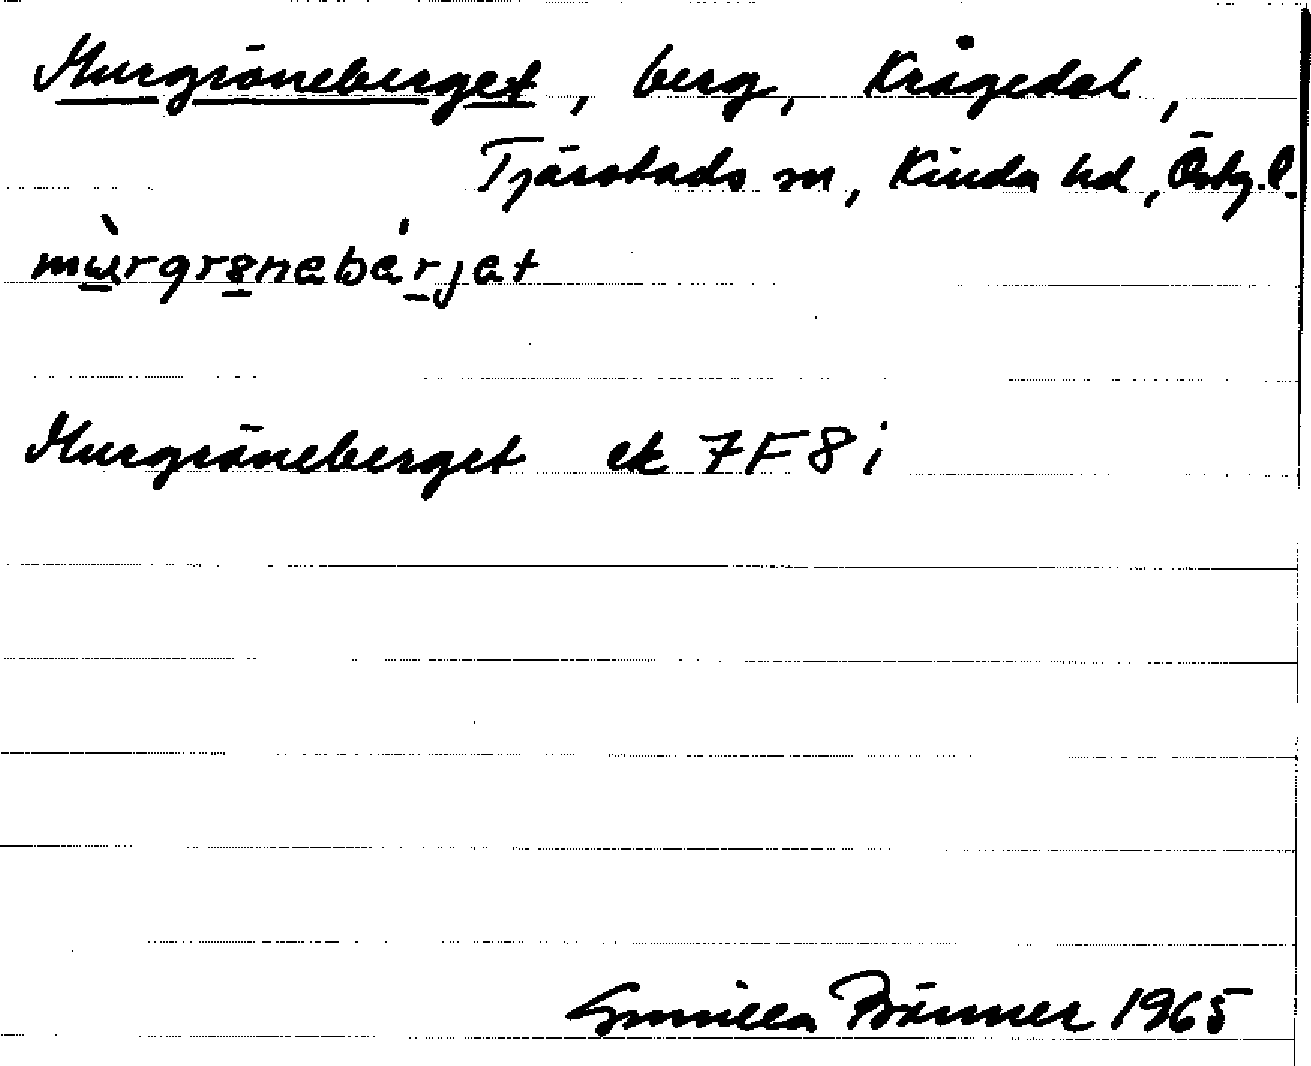 Murgröneberget, berg, Krågedal,
Tjärstads sn, Kinda hd, Östg.l.
mùrgrönebä́rjet
Murgröneberget ek 7F8i
Gunilla Bränner 1965